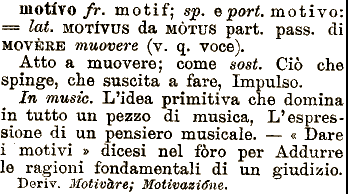 motívo fr. motif; sp. e port. motivo:
= lat. MOTÍVUS da MÒTUS part. pass. di
MOVÈRE muovere (v. q. voce).
Atto a muovere; come sost. Ciò che
spinge, che suscita a fare, Impulso.
In music. L'idea primitiva che domina
in tutto un pezzo di musica, L'espres-
sione di un pensiero musicale. — « Dare
i motivi » dicesi nel fòro per Addurre
le ragioni fondamentali di un giudizio.
Deriv. Motivàre; Motivazióne.